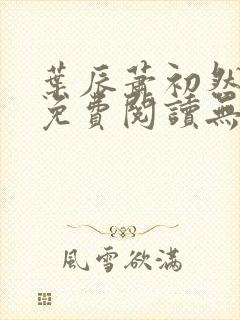 葉辰蕭初然
免費閱讀無
風雪欲滿